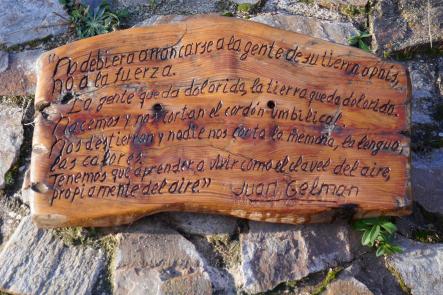 "No debiera arrancarse a la gente de su tierra o país,
no a la fuerza.
La gente queda dolorida, la tierra queda dolorida.
Nacemos y nos cortan el cordón umbilical.
Nos destierran y nadie nos corta la memoria, la lengua,
las calores.
Tenemos que aprender a vivir como el clavel del aire,
propiamente del aire."
Juan Gelman